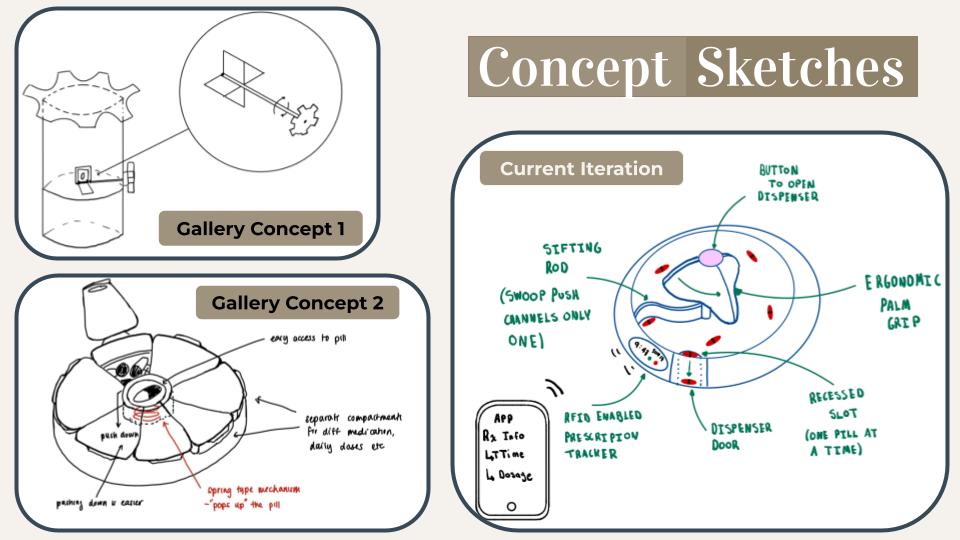 Concept Sketches
Gallery Concept 1
Gallery Concept 2
easy access to pill
separate compartments
for diff medication,
daily doses etc
push down
pushing down is easier
spring type mechanism
- "pops up" the pill
Current Iteration
BUTTON
TO OPEN
DISPENSER
SIFTING
ROD
(SWOOP PUSH
CHANNELS ONLY
ONE)
ERGONOMIC
PALM
GRIP
RECESSED
SLOT
(ONE PILL AT
A TIME)
DISPENSER
DOOR
RFID ENABLED
PRESCRIPTION
TRACKER
APP
Rx Info
↳ Time
↳ Dosage